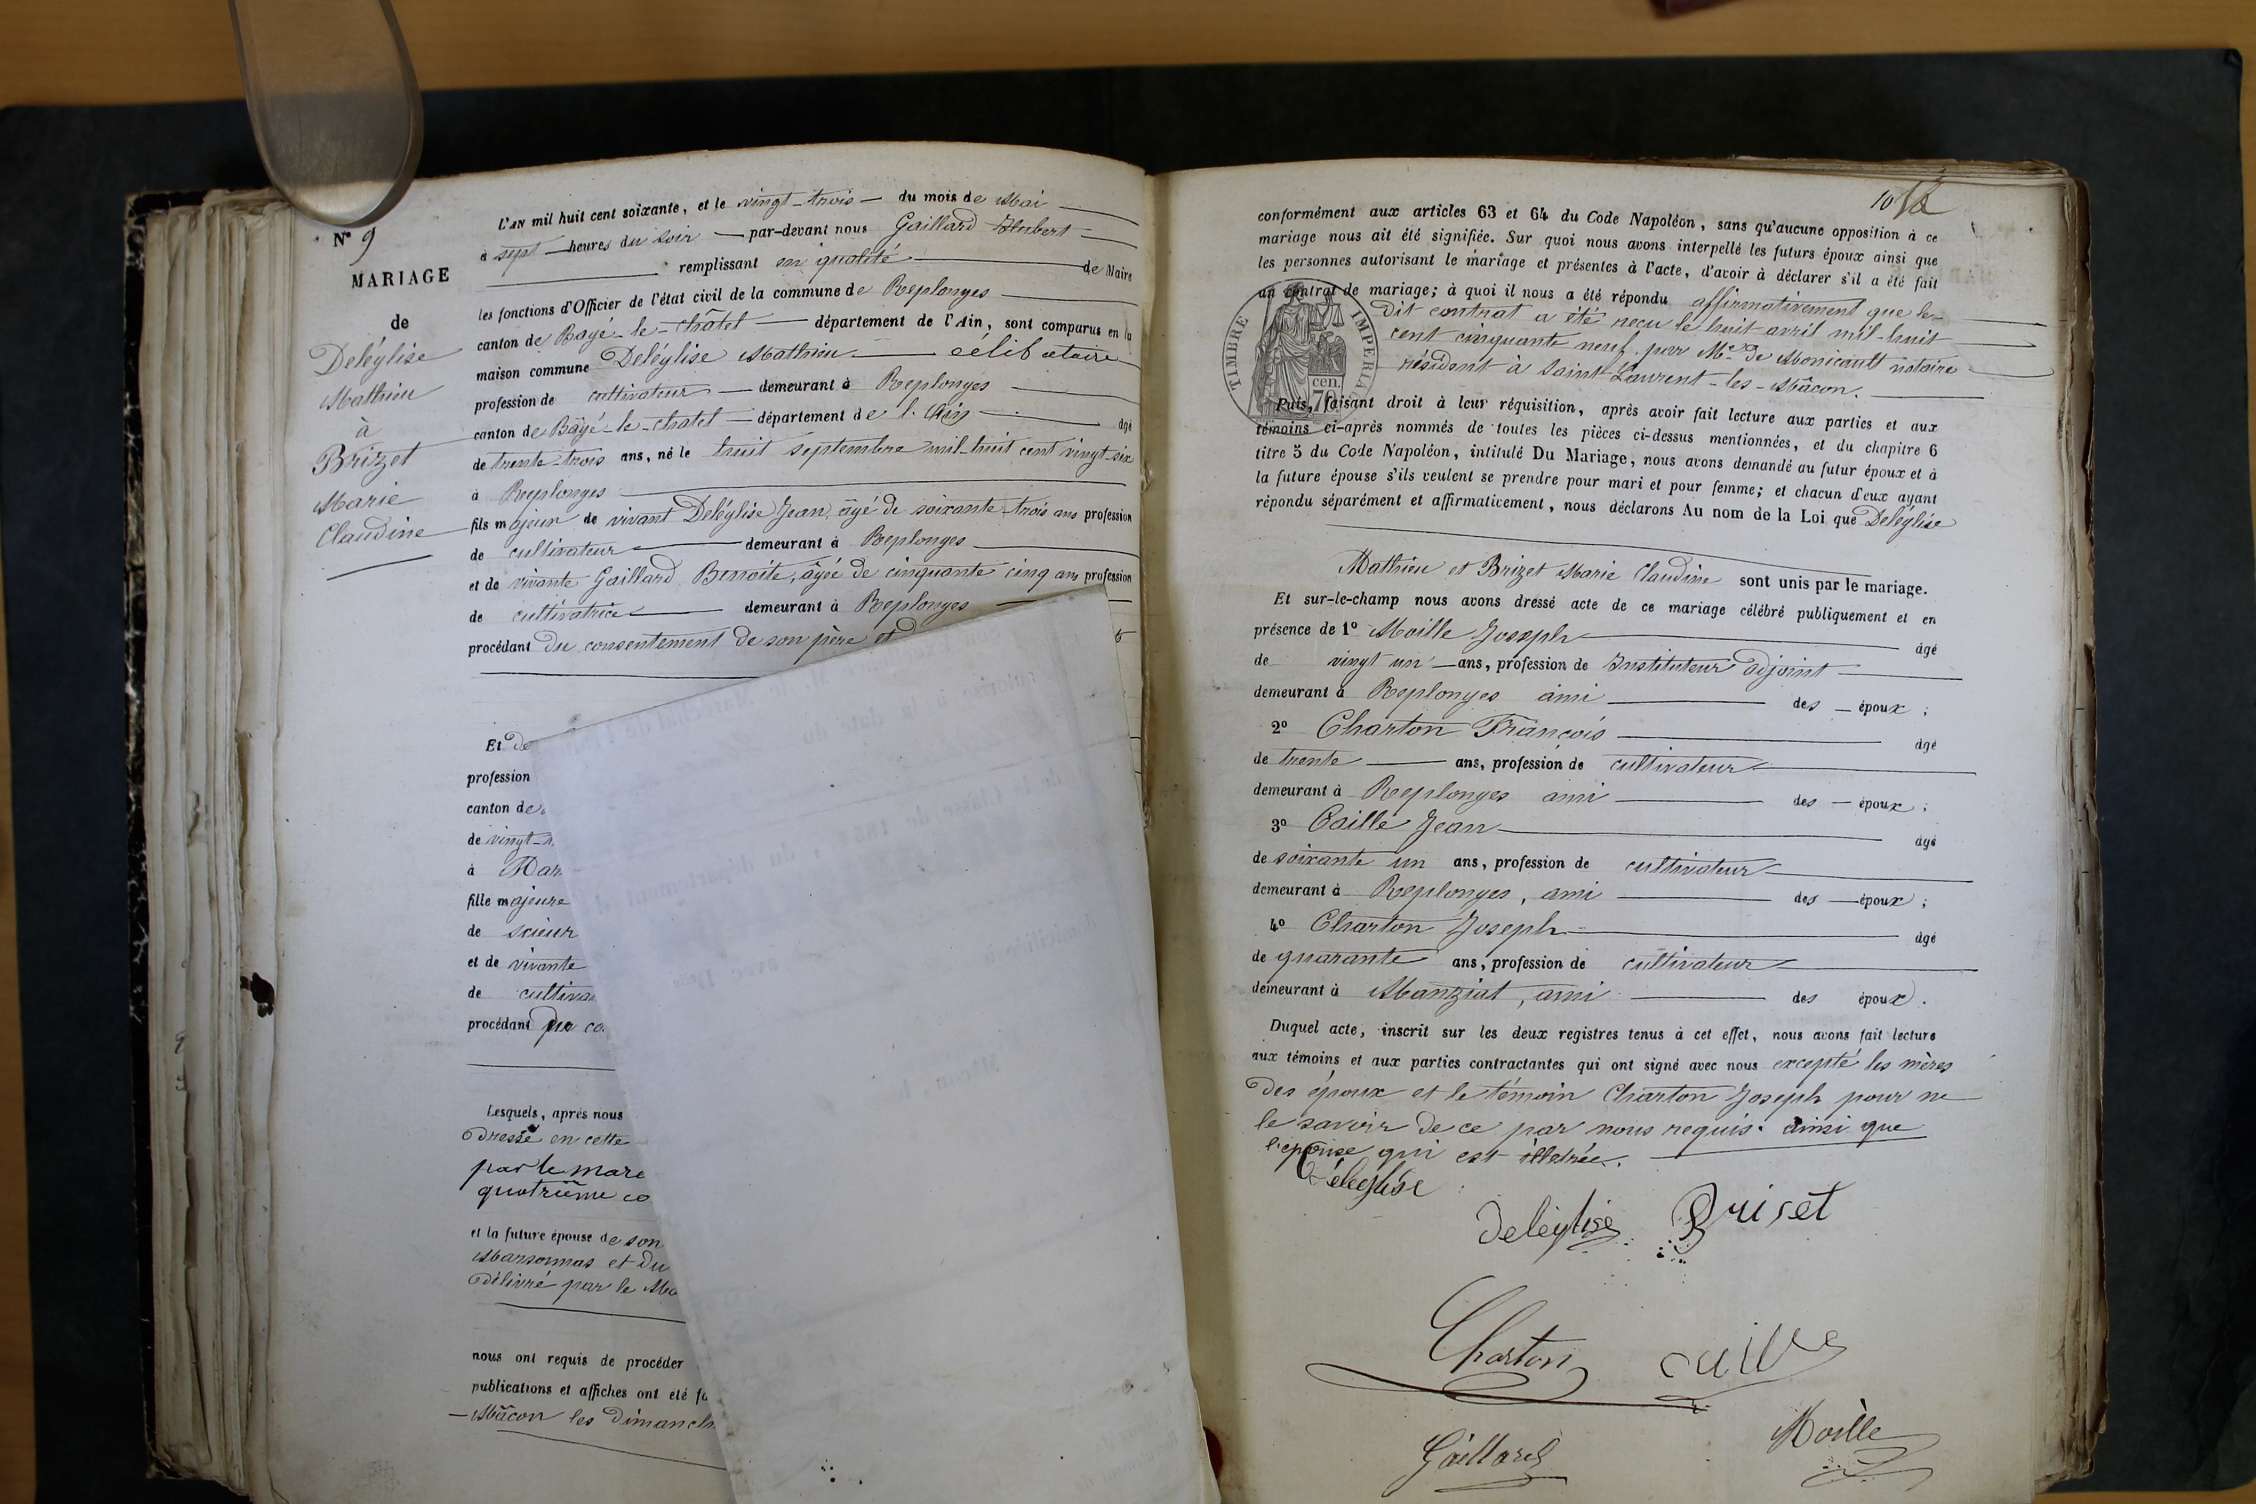 N° 9
MARIAGE
de
Deléglise
Mathieu
à
Brizet
Marie
Claudine
L'AN mil huit cent soixante, et le vingt-trois du mois de Mai
à sept heures du soir par-devant nous Gaillard Hubert
remplissant en qualité de Maire
les fonctions d'Officier de l'état civil de la commune de Replonges
canton de Bagé-le-châtel département de l'Ain, sont comparus en la
maison commune Deléglise Mathieu célibataire
profession de cultivateur demeurant à Replonges
canton de Bâgé-le-chatel département de l'Ain âgé
de trente-trois ans, né le huit septembre mil-huit cent vingt-six
à Replonges
fils majeur de vivant Deléglise Jean, âgé de soixante-trois ans profession
de cultivateur demeurant à Replonges
et de vivante Gaillard Benoite, âgée de cinquante cinq ans profession
de cultivatrice demeurant à Replonges
procédant du consentement de son père et d
Et de
profession
canton de
de vingt-
à Mar
fille majeure
de scieur
et de vivante
de cultiva
procédant du co
Lesquels, après nous
dressé en cette
par le mare
quatrième co
et la future épouse de son
Marsonnas et du
délivré par le Ma
nous ont requis de procéder
publications et affiches ont été fa
Mâcon les dimanch
10
conformément aux articles 63 et 64 du Code Napoléon, sans qu'aucune opposition à ce
mariage nous ait été signifiée. Sur quoi nous avons interpellé les futurs époux ainsi que
les personnes autorisant le mariage et présentes à l'acte, d'avoir à déclarer s'il a été fait
un contrat de mariage; à quoi il nous a été répondu affirmativement que le
dit contrat a été reçu le huit avril mil-huit
cent cinquante neuf par Me de Monicault notaire
résidant à Saint-Laurent-les-Mâcon.
TIMBRE IMPERIAL
70 cen.
Puis, faisant droit à leur réquisition, après avoir fait lecture aux parties et aux
témoins ci-après nommés de toutes les pièces ci-dessus mentionnées, et du chapitre 6
titre 5 du Code Napoléon, intitulé Du Mariage, nous avons demandé au futur époux et à
la future épouse s'ils veulent se prendre pour mari et pour femme; et chacun d'eux ayant
répondu séparément et affirmativement, nous déclarons Au nom de la Loi que Deléglise
Mathieu et Brizet Marie Claudine sont unis par le mariage.
Et sur-le-champ nous avons dressé acte de ce mariage célébré publiquement et en
présence de 1° Moille Joseph âgé
de vingt un ans, profession de Instituteur adjoint
demeurant à Replonges ami des époux ;
2° Charton François âgé
de trente ans, profession de cultivateur
demeurant à Replonges ami des époux ;
3° Caille Jean âgé
de soixante un ans, profession de cultivateur
demeurant à Replonges, ami des époux ;
4° Charton Joseph âgé
de quarante ans, profession de cultivateur
demeurant à Manziat, ami des époux.
Duquel acte, inscrit sur les deux registres tenus à cet effet, nous avons fait lecture
aux témoins et aux parties contractantes qui ont signé avec nous excepté les mères
des époux et le témoin Charton Joseph pour ne
le savoir de ce par nous requis. ainsi que
l'épouse qui est illetrée.
Deléglise
deléglise Briset
Charton caille
Gaillard Moille